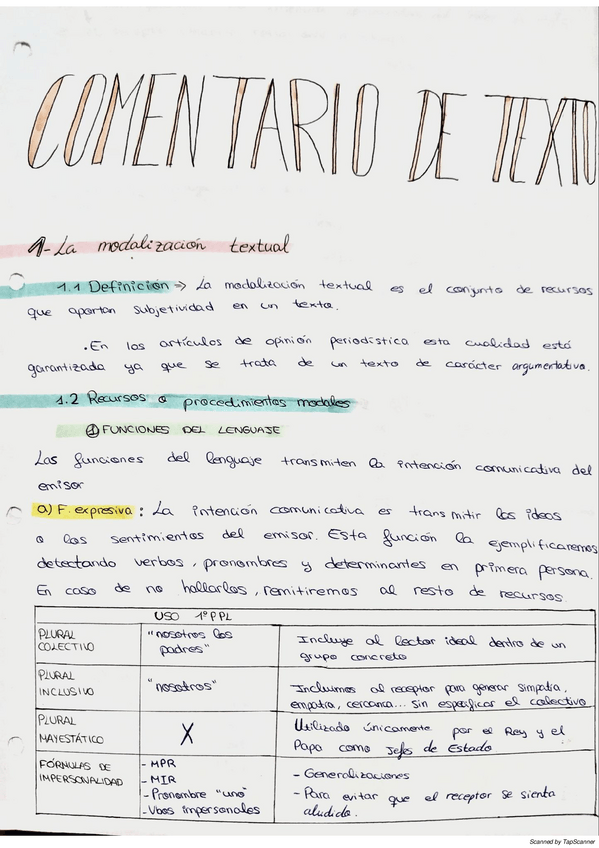 COMENTARIO DE TEXTO
1- La modalización textual
1.1 Definición → La modalización textual es el conjunto de recursos
que aportan subjetividad en un texto.
· En los artículos de opinión periodística esta cualidad está
garantizada ya que se trata de un texto de carácter argumentativo.
1.2 Recursos o procedimientos modales
① FUNCIONES DEL LENGUAJE
Las funciones del lenguaje transmiten la intención comunicativa del
emisor
a) F. expresiva : La intención comunicativa es transmitir las ideas
o los sentimientos del emisor. Esta función la ejemplificaremos
detectando verbos, pronombres y determinantes en primera persona.
En caso de no hallarlos, remitiremos al resto de recursos.
USO 1º P PL
PLURAL
COLECTIVO
"nosotros los
padres"
Incluye al lector ideal dentro de un
grupo concreto
PLURAL
INCLUSIVO
"nosotros"
Incluimos al receptor para generar simpatía,
empatía, cercanía... sin especificar el colectivo
PLURAL
MAYESTÁTICO
X
Utilizado únicamente por el Rey y el
Papa como Jefes de Estado
FÓRMULAS DE
IMPERSONALIDAD
- MPR
- MIR
- Pronombre "uno"
- Vbos impersonales
- Generalizaciones
- Para evitar que el receptor se sienta
aludido.
Scanned by TapScanner